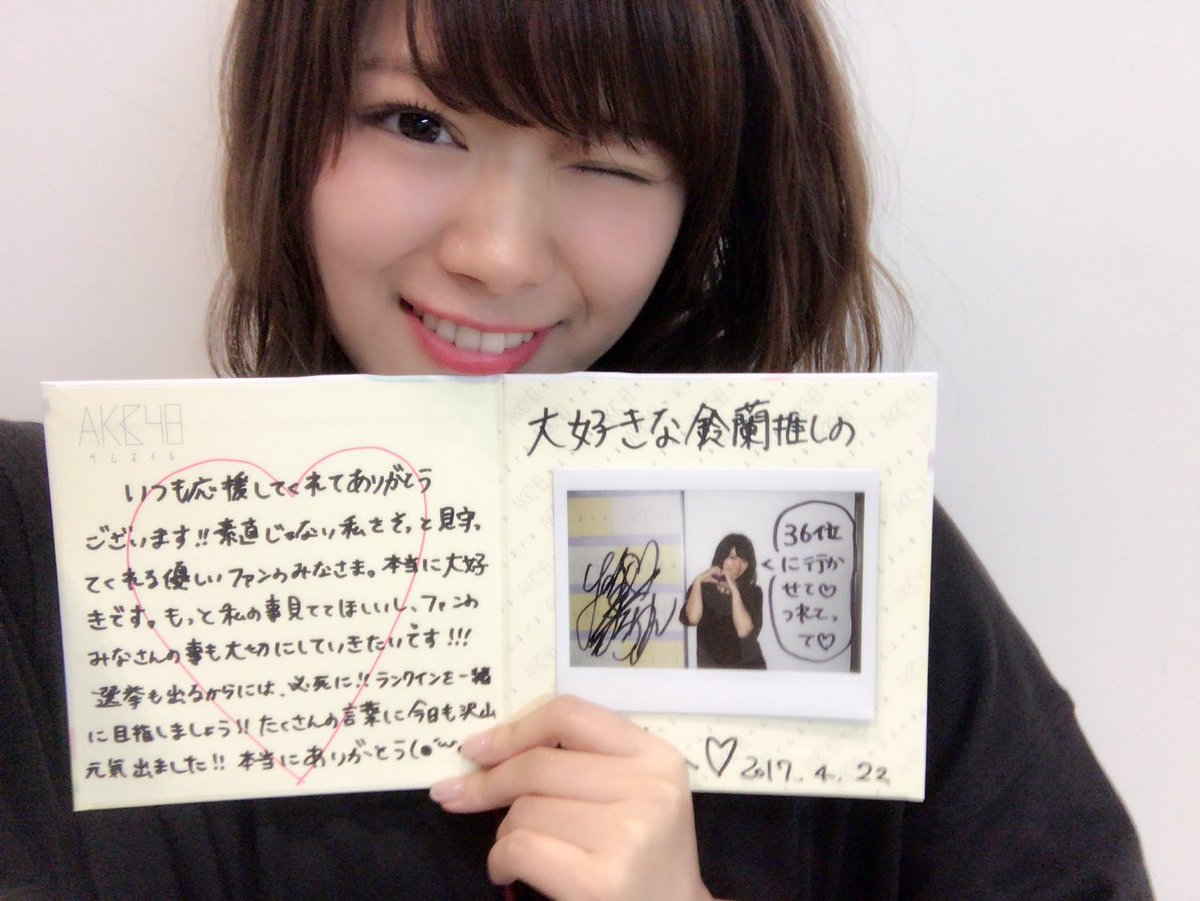 AKB48
サムネイル
いつも応援してくれてありがとう
ございます!!素直じゃない私をずっと見守っ
てくれる優しいファンのみなさま。本当に大好
きです。もっと私の事見ててほしいし、ファンの
みなさんの事も大切にしていきたいです!!!
選挙も出るからには、必死に!!ランクインを一緒
に目指しましょう!!たくさんの言葉に今日も沢山
元気出ました!!本当にありがとう(●´
大好きな鈴蘭推しの
36位
に行か
せて♡
つれてっ
て♡
♡2017.4.22